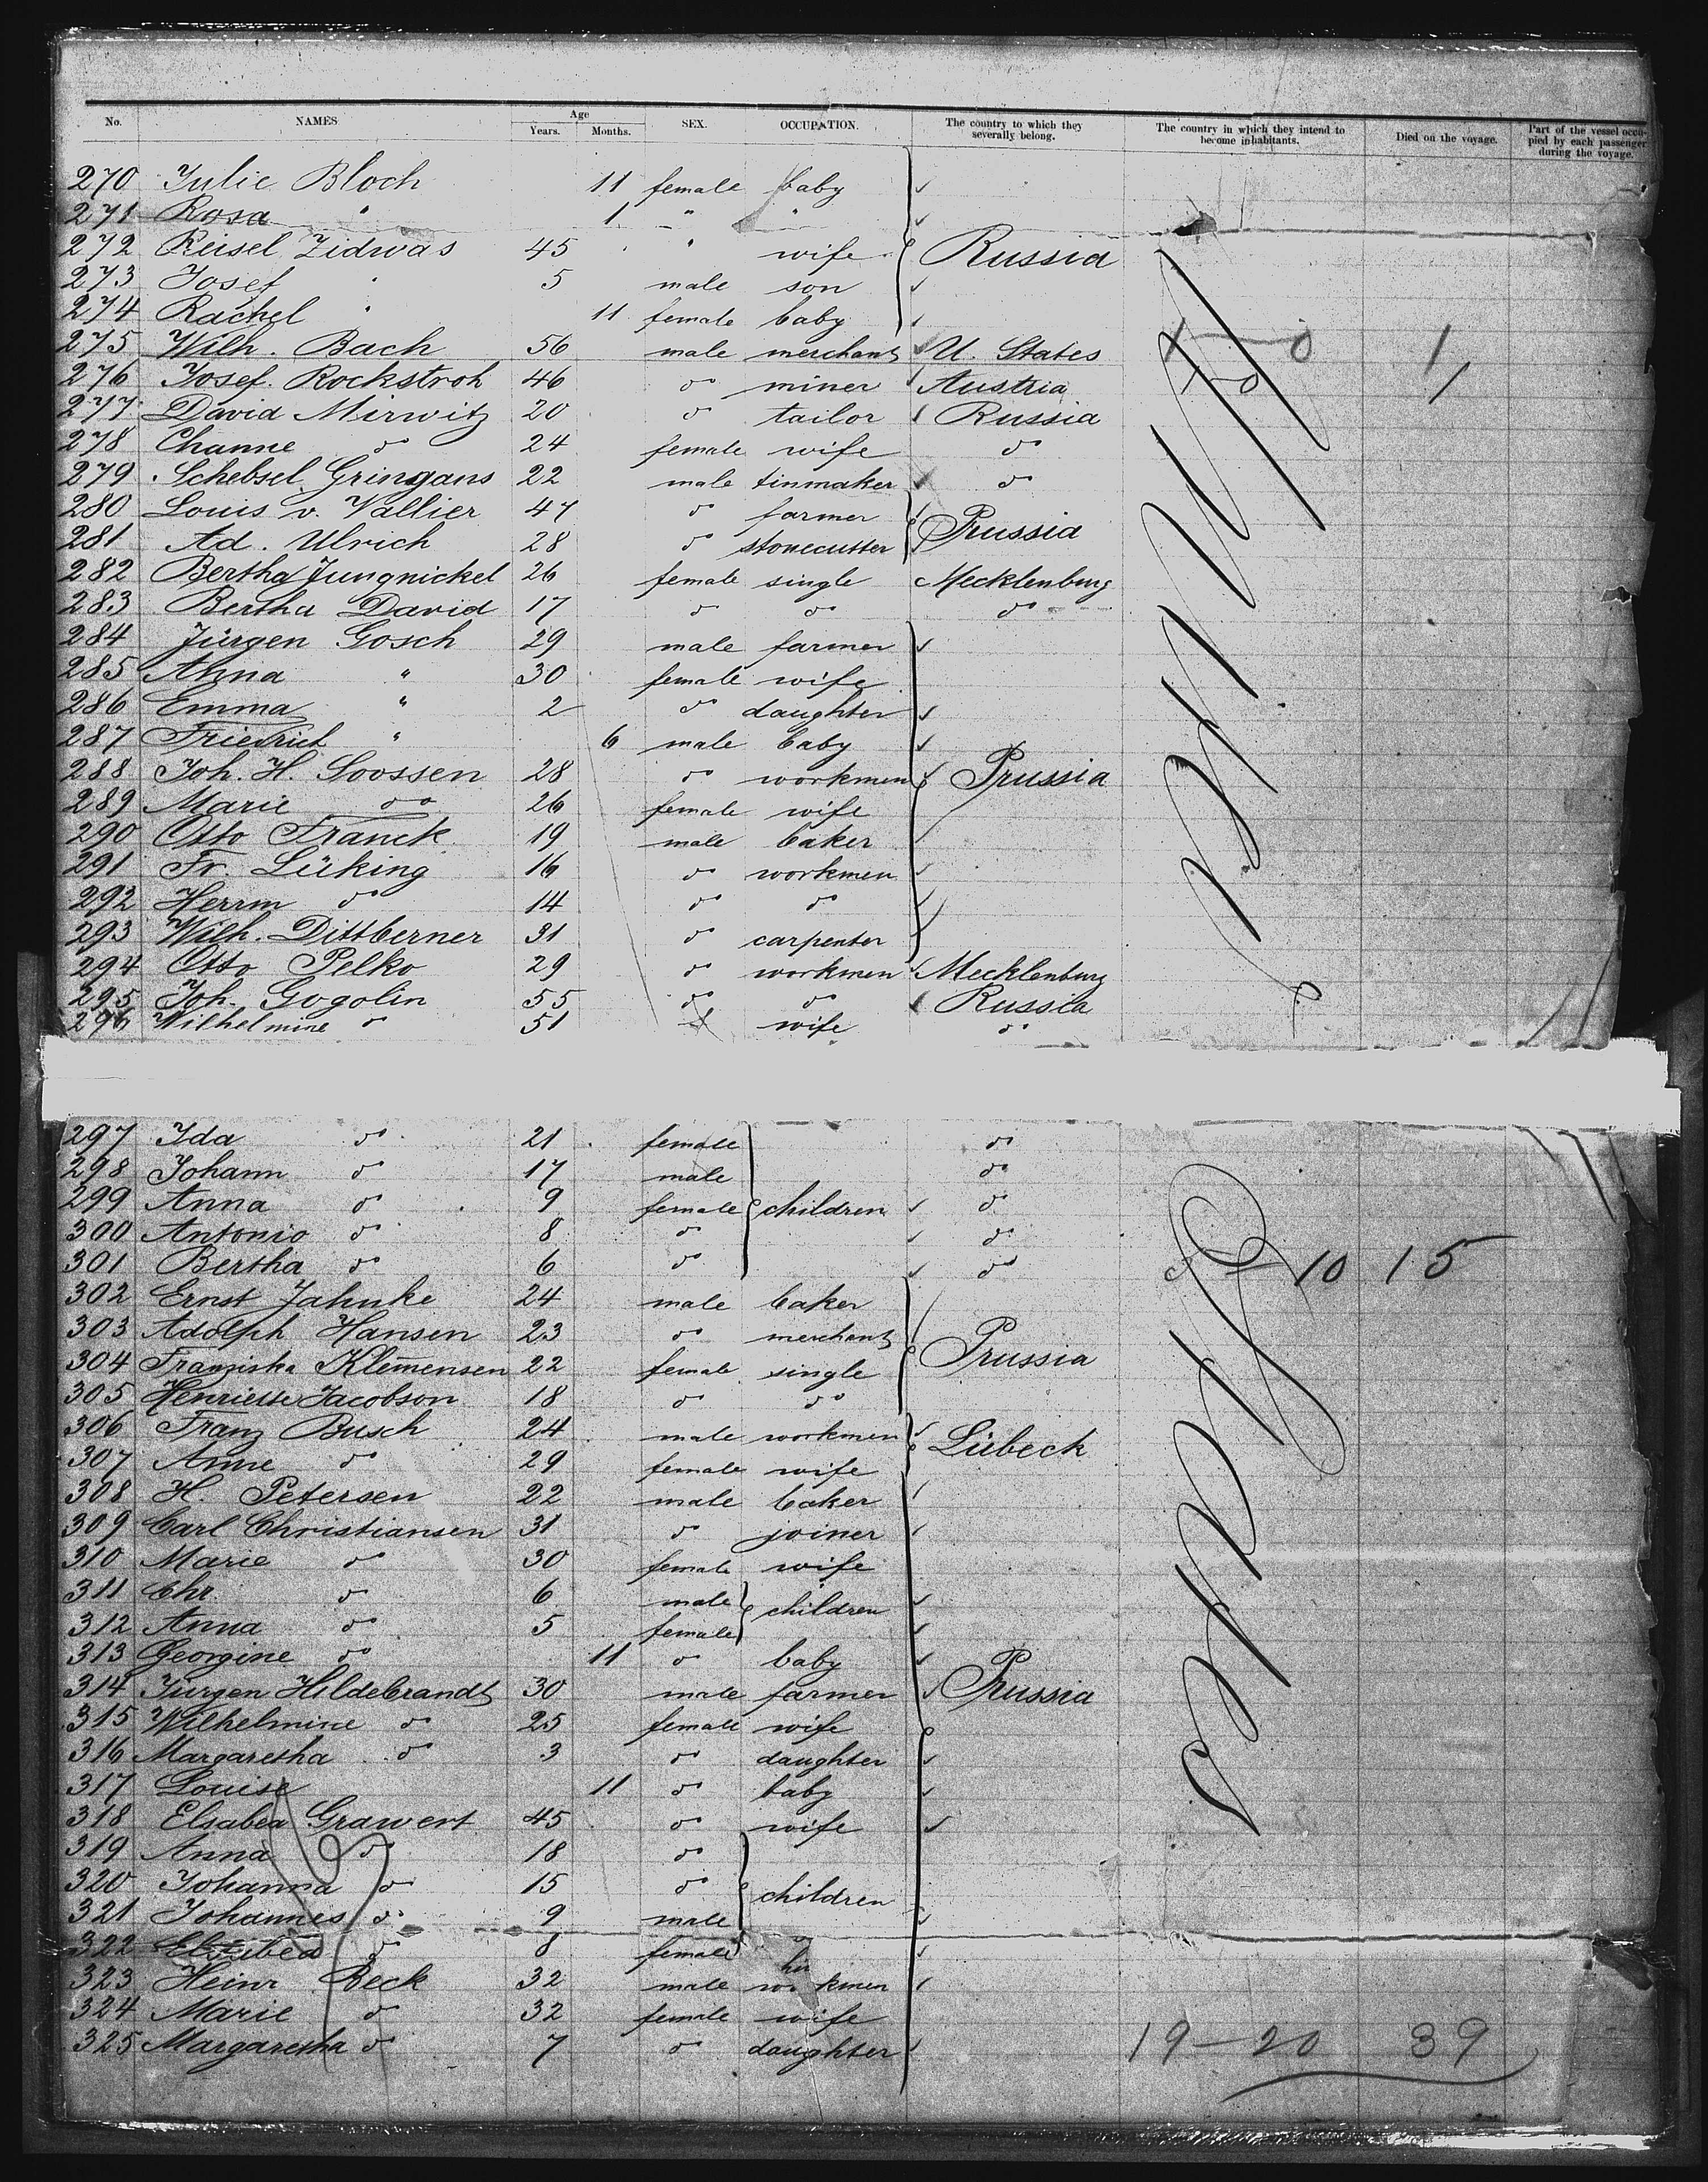 No. NAMES. Age Years. Months. SEX. OCCUPATION. The country to which they severally belong. The country in which they intend to become inhabitants. Died on the voyage. Part of the vessel occupied by each passenger during the voyage.
270 Julie Bloch 11 female baby
271 Rosa " 1 " "
272 Reisel Zidwas 45 " wife Russia
273 Josef " 5 male son
274 Rachel " 11 female baby
275 Wilh. Bach 56 male merchant U. States 1 0 1
276 Josef. Rockstroh 46 do miner Austria 1 0 1
277 David Mirwitz 20 do tailor Russia
278 Channe do 24 female wife do
279 Schebsel Gringans 22 male tinmaker do
280 Louis v. Vallier 47 do farmer
281 Ad. Ulrich 28 do stonecutter Prussia
282 Bertha Jungnickel 26 female single Mecklenburg
283 Bertha David 17 do do do
284 Jürgen Gosch 29 male farmer
285 Anna " 30 female wife
286 Emma " 2 do daughter
287 Friedrich " 6 male baby
288 Joh. H. Soossen 28 do workmen Prussia
289 Marie do 26 female wife
290 Otto Franck 19 male baker
291 Fr. Lüking 16 do workmen
292 Herrm do 14 do do
293 Wilh. Dittberner 31 do carpenter
294 Otto Pelko 29 do workmen Mecklenburg
295 Joh. Gogolin 55 do do Russia
296 Wilhelmine do 51 wife do
297 Ida do 21 female do
298 Johann do 17 male do
299 Anna do 9 female children do
300 Antonio do 8 do do
301 Bertha do 6 do do 5 10 15
302 Ernst Jahnke 24 male baker
303 Adolph Hansen 23 do merchant Prussia
304 Franziska Klemensen 22 female single
305 Henriette Jacobson 18 do do
306 Franz Busch 24 male workmen Lübeck
307 Anne do 29 female wife
308 H. Petersen 22 male baker
309 Carl Christiansen 31 do joiner
310 Marie do 30 female wife
311 Chr. do 6 male children
312 Anna do 5 female
313 Georgine do 11 do baby
314 Jurgen Hildebrandt 30 male farmer Prussia
315 Wilhelmine do 25 female wife
316 Margaretha do 3 do daughter
317 Louise 11 do baby
318 Elsabea Grawert 45 do wife
319 Anna do 18 do
320 Johanna do 15 do children
321 Johannes do 9 male
322 do 8 female
323 Heinr Beck 32 male workmen
324 Marie do 32 female wife
325 Margaretha do 7 do daughter 19-20 39